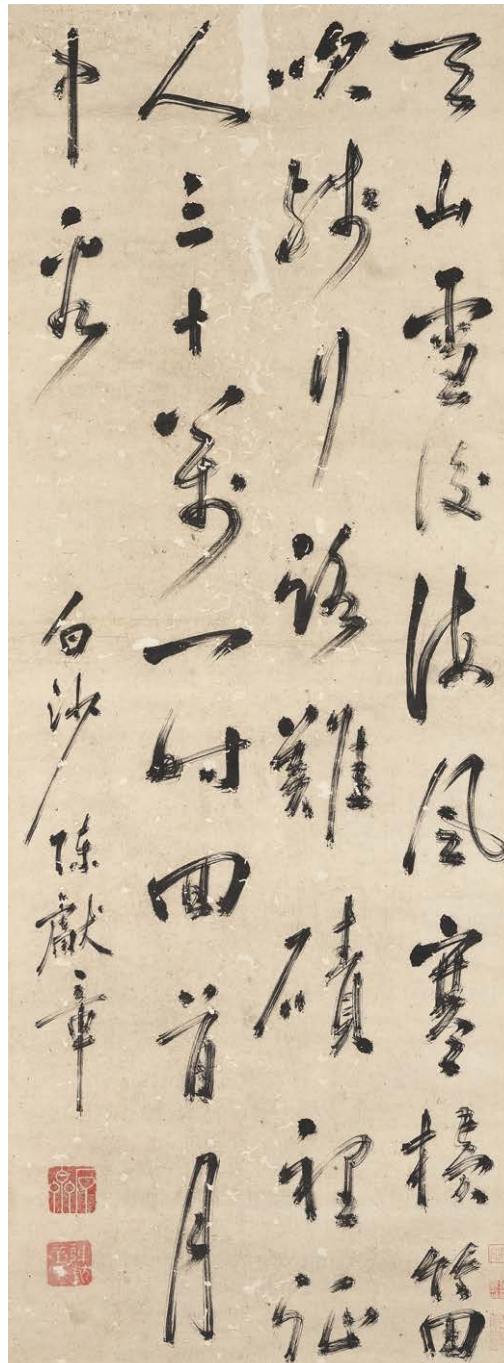 天山雪後海風寒橫笛
吹行路難磧裡征
人三十萬一時回首月
中看
白沙陳獻章